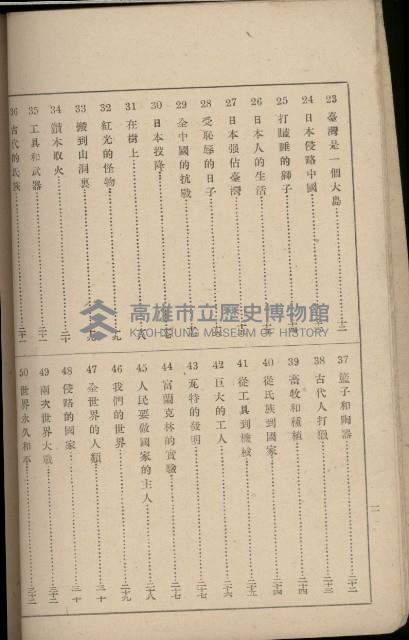 23 臺灣是一個大島
24 日本侵略中國
25 打瞌睡的獅子
26 日本人的生活
27 日本強佔臺灣
28 受恥辱的日子
29 全中國的抗戰
30 日本投降
31 在樹上
32 紅光的怪物
33 搬到山洞裏
34 鑽木取火 二十
35 工具和武器 二十一
36 古代的氏族 二十一
37 籃子和陶器 二十二
38 古代人打獵 二十三
39 畜牧和種植 二十四
40 從氏族到國家 二十四
41 從工具到機械 二十五
42 巨大的工人 二十六
43 瓦特的發明 二十七
44 富蘭克林的實驗 二十七
45 人民要做國家的主人 二十八
46 我們的世界 二十九
47 全世界的人類 三十
48 侵略的國家 三十
49 兩次世界大戰
50 世界永久和平
一
高雄市立歷史博物館
KAOHSIUNG MUSEUM OF HISTORY